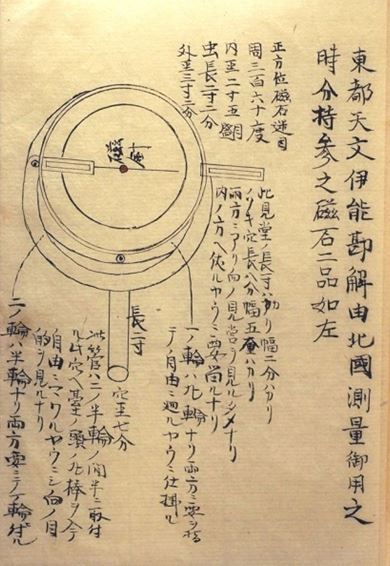 東都天文伊能勘解由北國測量御用之
時分持参之磁石二品如左
正方位磁石迷目
周三百六十度
内至二寸五
虫長二寸二分
外至三寸二分
磁針
此見堂ノ長寸ハカリ幅二分ハカリ
ノリキ穴長八分幅五ハカリ
両方ニアリ向ノ見當ヲ見ルシメナリ
内ノ方ヘ伏ルヤウニ要尚ルナリ
一ノ輪ハ丸輪ナリ両方ニ要ヲ
テノ自由ニ廻ルヤウニ仕掛ル
長二寸
穴至七分
此管ハ二ノ半輪ノ間半ニ取付
ル此穴ヘ基ノ頭ノ丸棒ヲ今
自由ニマワルヤウニシ向ノ目
的ヲ見ルナリ
二ノ輪ハ半輪ナリ両方要ニテ一輪付ル